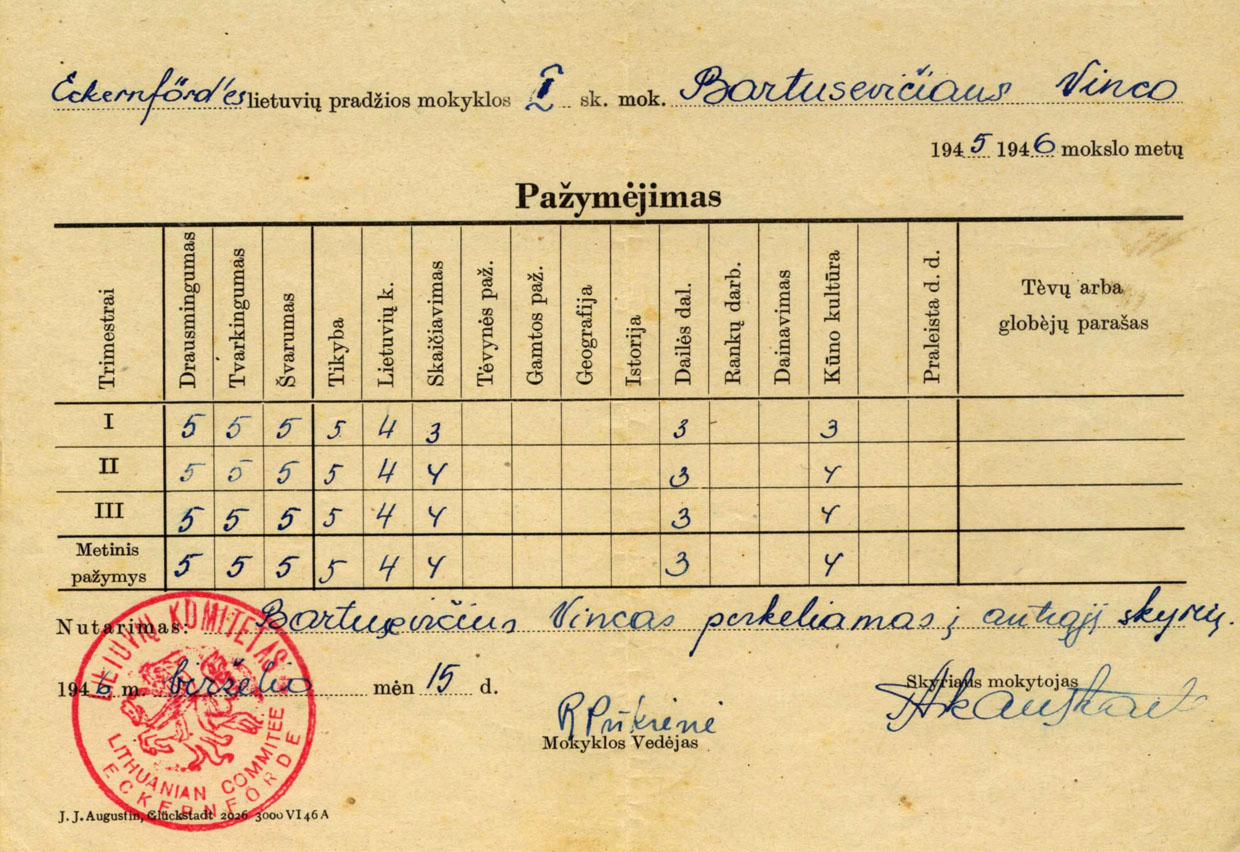 Eckernförd'ės lietuvių pradžios mokyklos I sk. mok. Bartusevičiaus Vinco
1945 1946 mokslo metų
Pažymėjimas
Trimestrai Drausmingumas Tvarkingumas Švarumas Tikyba Lietuvių k. Skaičiavimas Tėvynės paž. Gamtos paž. Geografija Istorija Dailės dal. Rankų darb. Dainavimas Kūno kultūra Praleista d. d. Tėvų arba
globėjų parašas
I 5 5 5 5 4 3 3 3
II 5 5 5 5 4 4 3 4
III 5 5 5 5 4 4 3 4
Metinis
pažymys 5 5 5 5 4 4 3 4
Nutarimas: Bartusevičius Vincas perkeliamas į antrąjį skyrių.
1946 m. birželio mėn 15 d.
Skyriaus mokytojas
Mokyklos Vedėjas
LIETUVIŲ KOMITETAS
LITHUANIAN COMMITEE
ECKERNFÖRDE
J. J. Augustin, Glückstadt 2026 3000 VI 46 A